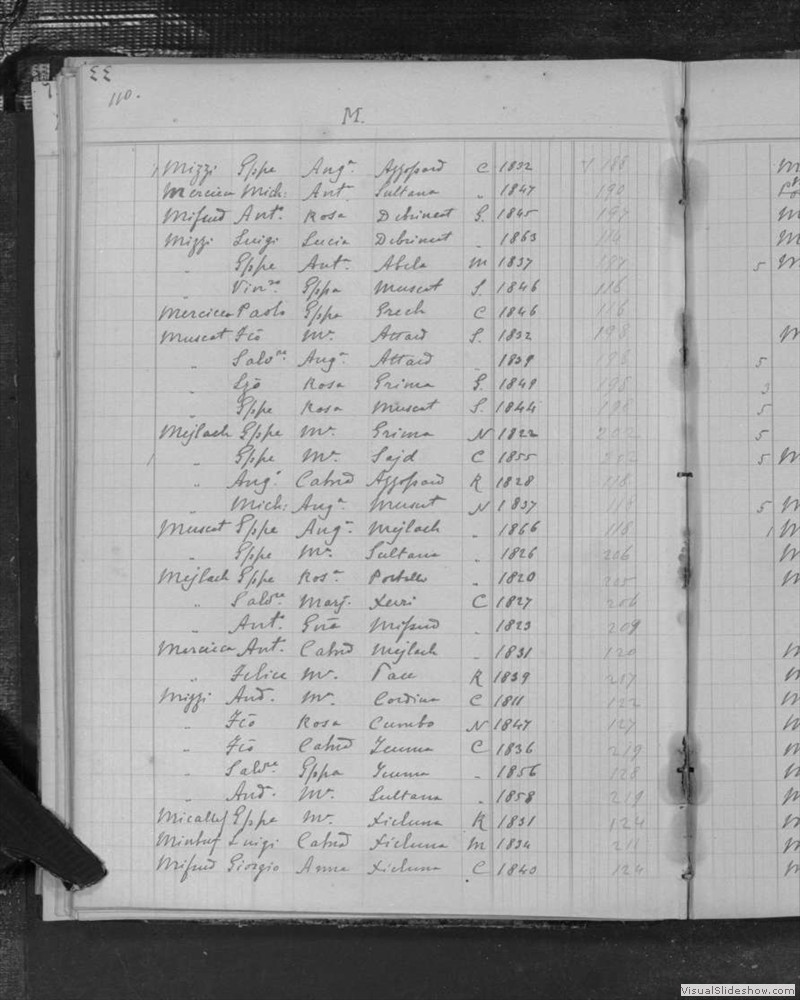 33
110.
M.
Mizzi Gppe Ang.a Azzopard C 1832 188
Mercieca Mich: Ant.a Sultana " 1847 190
Mifsud Ant.o Rosa Debrincat G. 1845 197
Mizzi Luigi Lucia Debrincat " 1863 114
" Gppe Ant.a Abela M 1837 187
" Vin.zo Gppa Muscat S. 1846 116
Mercieca Paolo Gppa Grech C 1846 116
Muscat Fcō M.a Attard S. 1832 198
" Salv.re Ang.a Attard " 1839 198
" Lzō Rosa Grima G. 1849 198
" Gppe Rosa Muscat S. 1844
Mejlach Gppe M.a Grima N 1822 202
" Gppe M.a Sajd C 1855 252
" Ang.o Catnā Azzopard K 1828 118
" Mich: Ang.a Muscat N 1837 118
Muscat Gppe Ang.a Mejlach " 1866 118
" Gppe M.a Sultana " 1826 206
Mejlach Gppe Ros.a Portelli " 1820 205
" Salv.re Marj. Xerri C 1827 206
" Ant.o Grā Mifsud " 1823 209
Mercieca Ant. Catnā Mejlach " 1831 120
" Felice M.a Pace K 1839 217
Mizzi And. M.a Cordina C 1811 122
" Fcō Rosa Cumbo N 1847 127
" Fcō Catnā Zemma C 1836 219
" Salv.re Gppa Zemma " 1856 128
" And. M.a Sultana " 1858 219
Micallef Gppe M.a Xicluna K 1831 124
Mintuf Luigi Catnā Xicluna M 1834 211
Mifsud Giorgio Anna Xicluna C 1840 124
VisualSlideshow.com